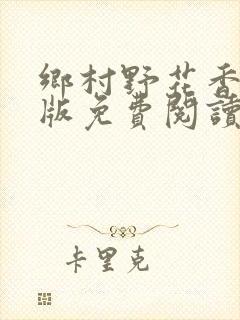 鄉村野花香
版免費閱讀
卡里克